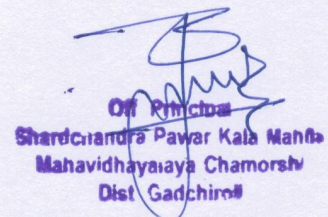 Off Principal
Shardchandra Pawar Kala Mahila
Mahavidhayalaya Chamorshi
Dist Gadchiroli